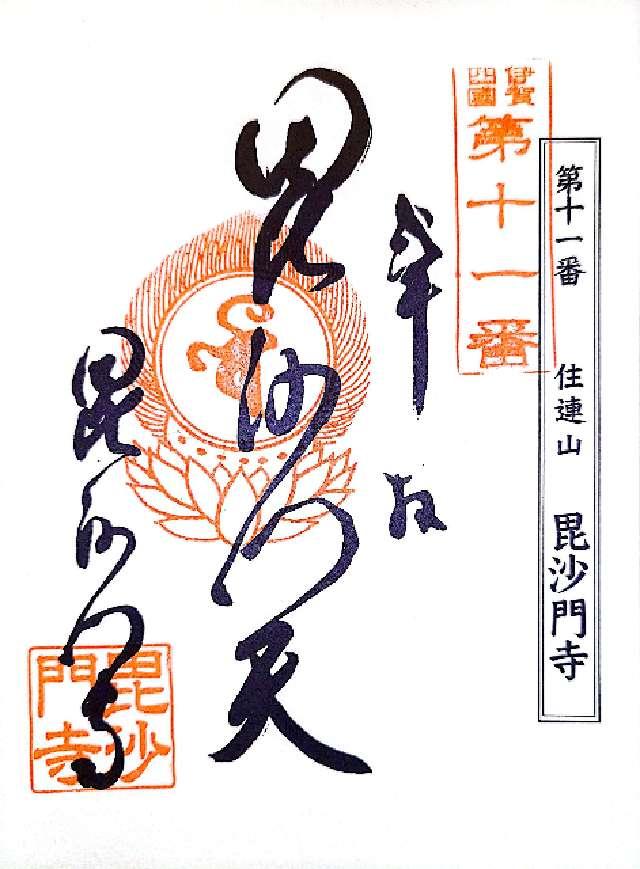 第十一番 住連山 毘沙門寺
伊賀
四國
第十一番
奉拝
毘沙門天
毘沙門寺
毘沙
門寺